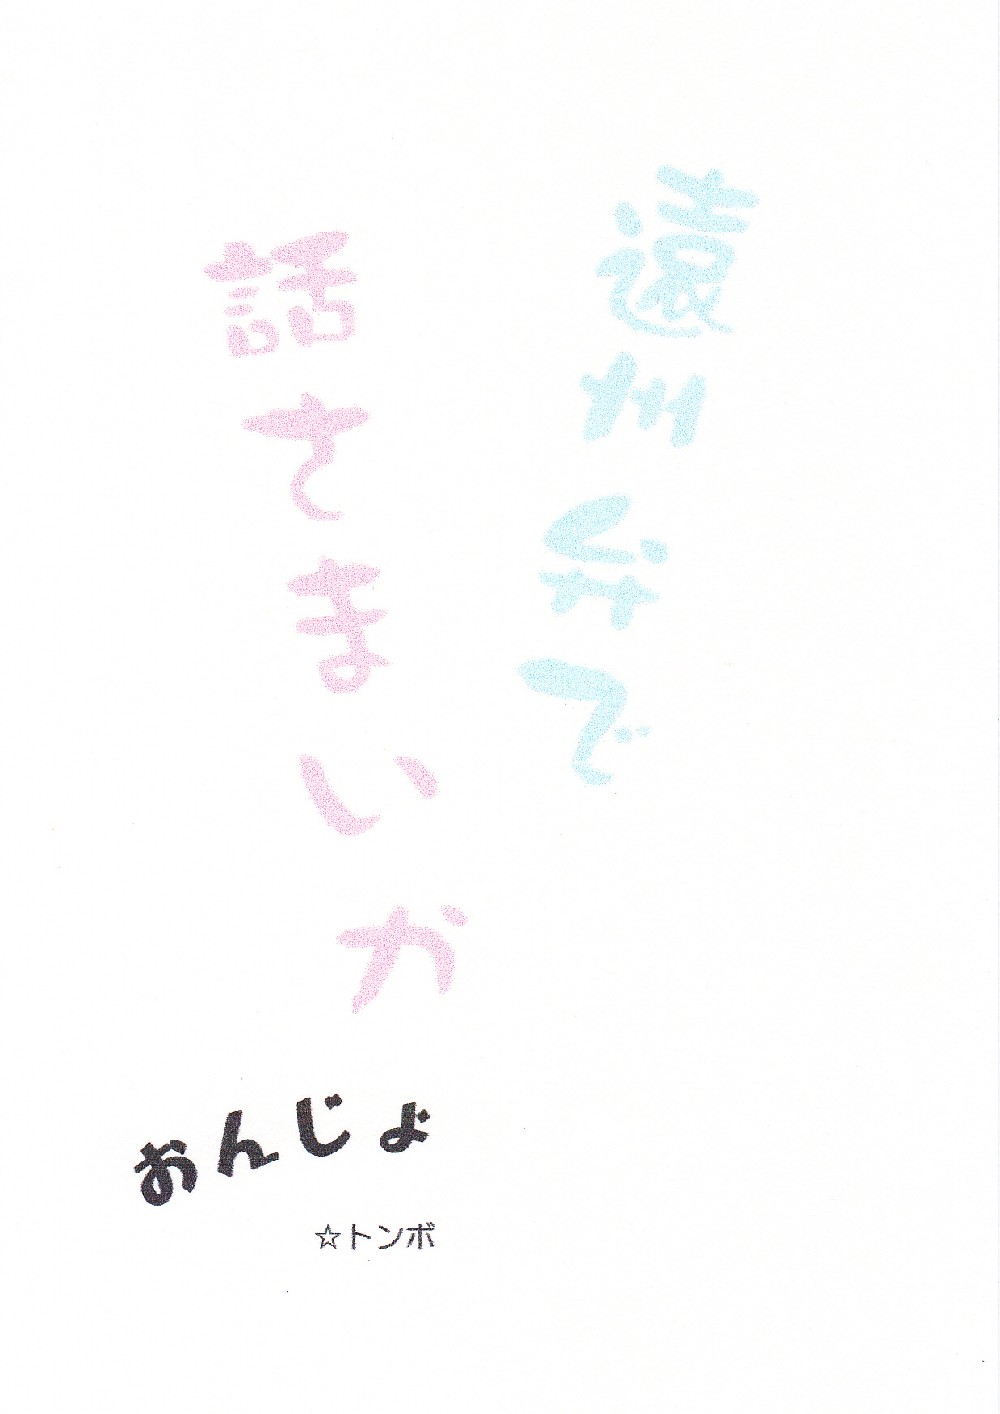 遠州弁で
話さまいか
おんじょ
☆トンボ